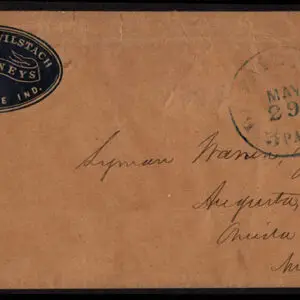 WILSTACH
NEYS
E IND.
MAY
29
PA
Lyman Warren,
Augusta,
Oneida